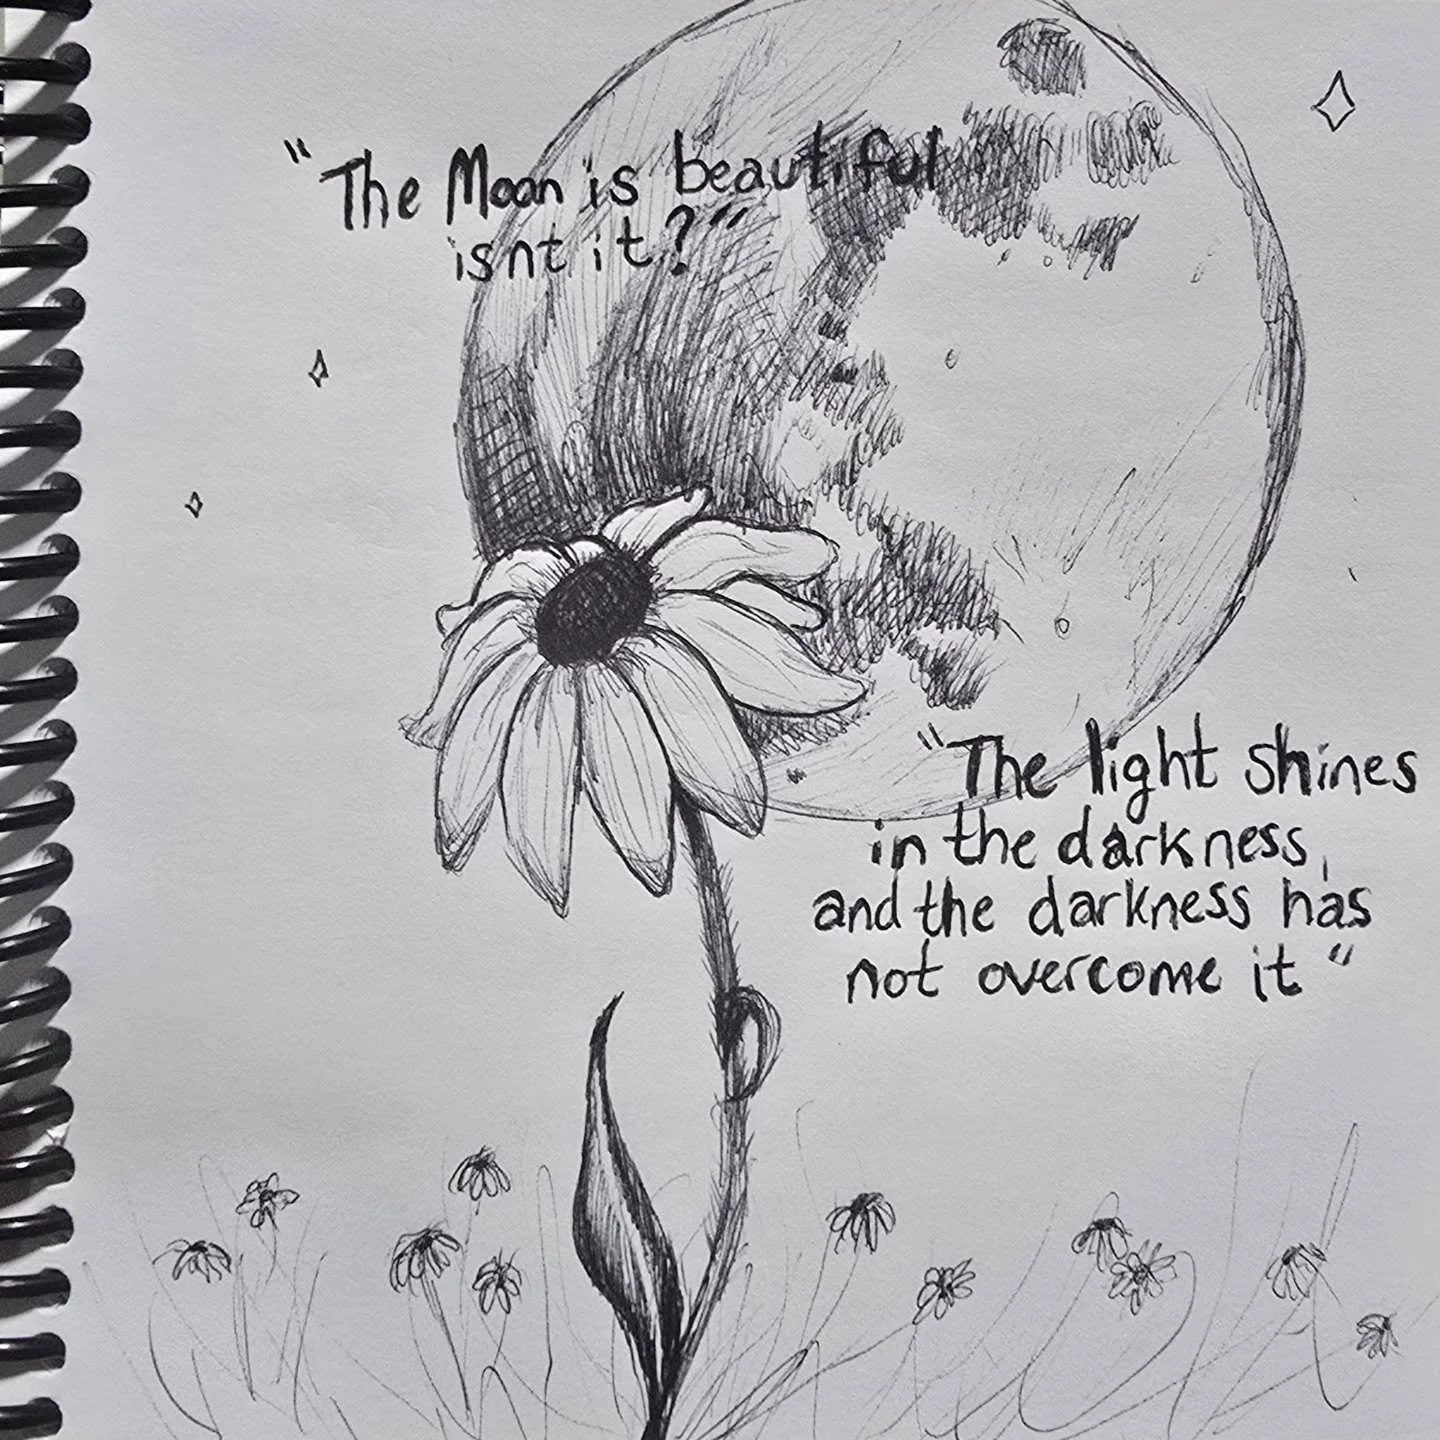 "The Moon is beautiful
isnt it?"
"The light shines
in the darkness,
and the darkness has
not overcome it"